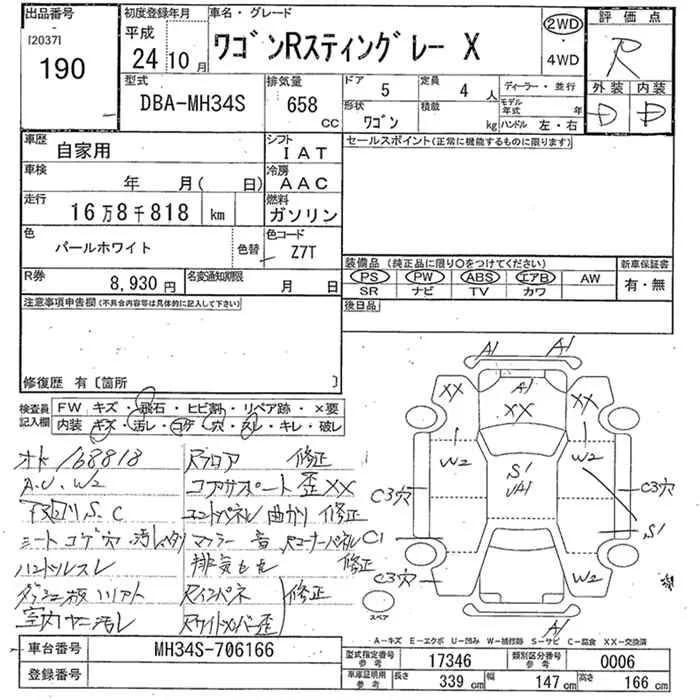 出品番号
[2037]
190
初度登録年月
平成
24 10 月
車名・グレード
ワゴンRスティングレー X
2WD
・
4WD
評価点
R
外装 内装
D D
型式
DBA-MH34S
排気量
658
cc
ドア 5
定員 4 人
形状 ワゴン
積載 kg
ディーラー・並行
モデル年式 年
ハンドル 左・右
車歴
自家用
シフト
IAT
車検
年 月( 日)
冷房
AAC
走行
16万8千818 km
燃料
ガソリン
色
パールホワイト
色替
色コード
Z7T
R券
8,930 円
名変通知期限
月 日
セールスポイント(正常に機能するものに限ります)
装備品(純正品に限り○をつけてください)
PS PW ABS エアB AW
SR ナビ TV カワ
新車保証書
有・無
後日品
注意事項申告欄(不具合内容等は具体的に記入して下さい)
修復歴 有〔箇所 〕
検査員記入欄
FW キズ・飛石・ヒビ割・リペア跡・×要
内装 キズ・汚レ・コゲ・穴・スレ・キレ・破レ
オド 168818
A.U.W2
下回りS.C
シートコゲ穴 汚レ
ハンドルスレ
室内ヤニ汚レ
Rフロア 修正
コアサポート 歪XX
エンドパネル 曲がり 修正
マフラー 音 Rコーナーパネル
排気もれ 修正
Rインパネ 修正
Rサイドメンバー歪
A1 A1
XX
A1
XX
XX
W2
W2
S1
UA1
C3穴
C3穴
C1
S1
C3穴
W2
A1
A1
スペア
A-キズ E-エクボ U-凹み W-補修跡 S-サビ C-腐食 XX-交換済
車台番号
MH34S-706166
登録番号
型式指定番号 参考
17346
類別区分番号 参考
0006
車庫証明用 参考
長さ 339 cm
幅 147 cm
高さ 166 cm